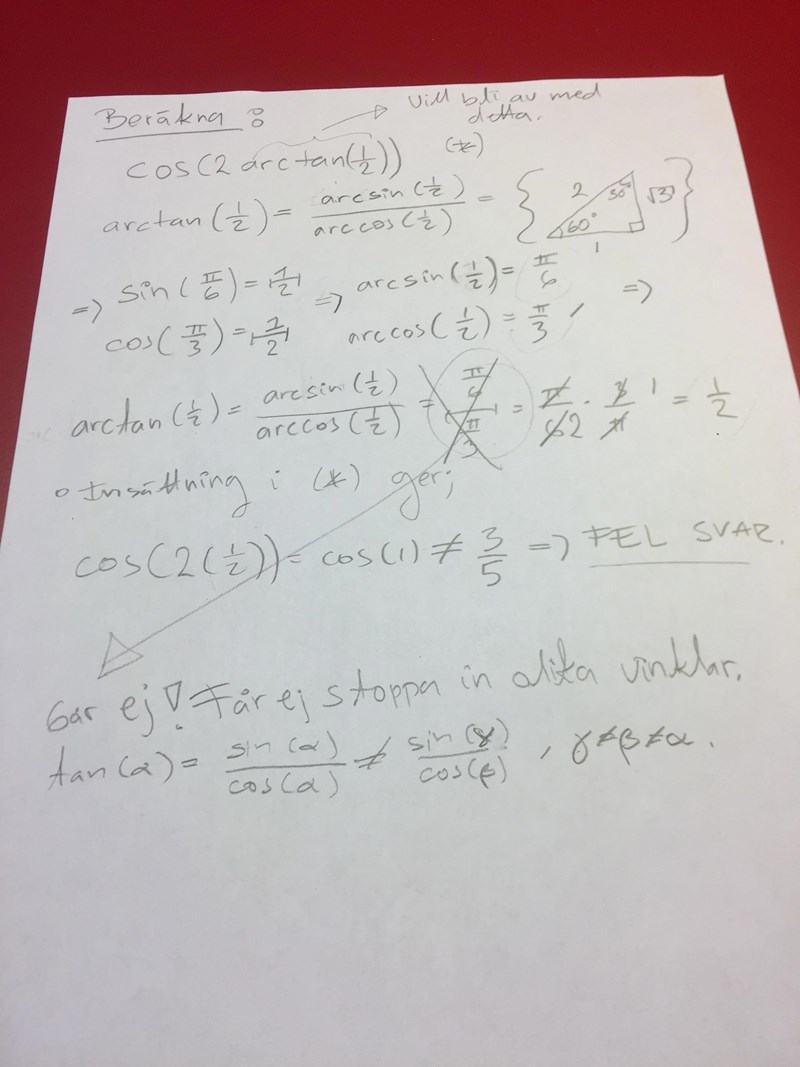 Beräkna :
Vill bli av med
detta.
cos(2 arctan(1/2)) (*)
arctan(1/2) = arcsin(1/2)/arccos(1/2) = { 2 30° √3 60° 1 }
=> sin(π/6) = 1/2 => arcsin(1/2) = π/6
cos(π/3) = 1/2 arccos(1/2) = π/3 , =>
arctan(1/2) = arcsin(1/2)/arccos(1/2) = (π/6)/(π/3) = π/62 · 3/π 1 = 1/2
o Insättning i (*) ger;
cos(2(1/2)) = cos(1) ≠ 3/5 => FEL SVAR.
Går ej! Får ej stoppa in olika vinklar.
tan(α) = sin(α)/cos(α) ≠ sin(γ)/cos(β) , γ≠β≠α.